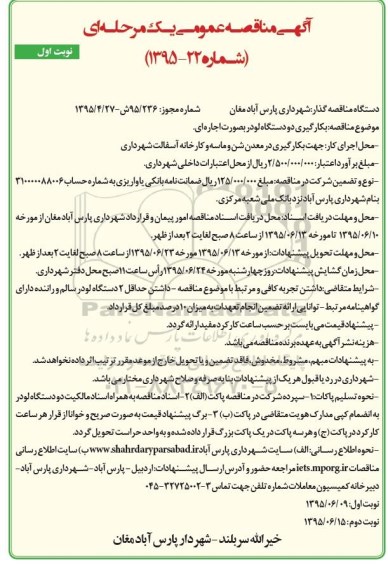 آگهی مناقصه عمومی یک مرحله‌ای
نوبت اول
(شماره ۲۲-۱۳۹۵)
دستگاه مناقصه گذار: شهرداری پارس آباد مغان شماره مجوز: ۹۵/۲۳۶ش-۱۳۹۵/۴/۲۷
موضوع مناقصه: بکارگیری دو دستگاه لودر بصورت اجاره‌ای.
-محل اجرای کار: جهت بکارگیری در معدن شن و ماسه و کارخانه آسفالت شهرداری
-مبلغ برآورد اعتبار: ۲/۵۰۰/۰۰۰/۰۰۰ ریال از محل اعتبارات داخلی شهرداری.
-نوع و تضمین شرکت در مناقصه: مبلغ ۱۲۵/۰۰۰/۰۰۰ ریال ضمانت نامه بانکی یا واریزی به شماره حساب ۳۱۰۰۰۰۰۸۸۰۰۶
بنام شهرداری پارس آباد نزد بانک ملی شعبه مرکزی.
-محل و مهلت دریافت اسناد: محل دریافت اسناد مناقصه امور پیمان و قرارداد شهرداری پارس آباد مغان از مورخه
۱۳۹۵/۰۶/۱۰ تا مورخه ۱۳۹۵/۰۶/۱۳ از ساعت ۸ صبح لغایت ۲ بعد از ظهر.
-محل و مهلت تحویل پیشنهادات: از مورخه ۱۳۹۵/۰۶/۱۳ مورخه ۱۳۹۵/۰۶/۲۳ از ساعت ۸ صبح لغایت ۲ بعد از ظهر.
-محل زمان گشایش پیشنهادات: روز چهارشنبه مورخه ۱۳۹۵/۰۶/۲۴ رأس ساعت ۱۱ صبح محل دفتر شهرداری.
-شرایط متقاضی: داشتن تجربه کافی و مرتبط با موضوع مناقصه - داشتن حداقل ۲ دستگاه لودر سالم و راننده دارای
گواهینامه مرتبط - توانایی ارائه تضمین انجام تعهدات به میزان ۱۰ درصد مبلغ کل قرارداد
-پیشنهاد قیمت می بایست بر حسب ساعت کارکرد مفید ارائه گردد.
-هزینه نشر آگهی به عهده برنده مناقصه می باشد.
-به پیشنهادات مبهم، مشروط، مخدوش، فاقد تضمین و یا تحویل خارج از موعد مقرر ترتیب اثر داده نخواهد شد.
-شهرداری در رد یا قبول هر یک از پیشنهادات بنا به صرفه و صلاح شهرداری مختار می باشد.
-نحوه تسلیم پاکات: ۱- سپرده شرکت در مناقصه پاکت (الف) ۲- اسناد مناقصه به همراه اسناد مالکیت دو دستگاه لودر
به انضمام کپی مدارک هویت متقاضی در پاکت (ب) ۳- برگ پیشنهاد قیمت به صورت صریح و خوانا از قرار هر ساعت
کارکرد در پاکت (ج) و هر سه پاکت در یک پاکت بزرگ قرار داده شده و به واحد حراست تحویل گردد.
-نحوه اطلاع رسانی: الف) سایت شهرداری پارس آباد www.shahrdaryparsabad.ir ب) سایت اطلاع رسانی
مناقصات iets.mporg.ir مراجعه حضور و آدرس ارسال پیشنهادات: اردبیل - پارس آباد - شهرداری پارس آباد -
دبیرخانه کمیسیون معاملات شماره تلفن جهت تماس ۳-۳۲۷۲۵۰۰۲-۰۴۵
نوبت اول: ۱۳۹۵/۰۶/۰۹
نوبت دوم: ۱۳۹۵/۰۶/۱۵
خیرالله سربلند - شهردار پارس آباد مغان